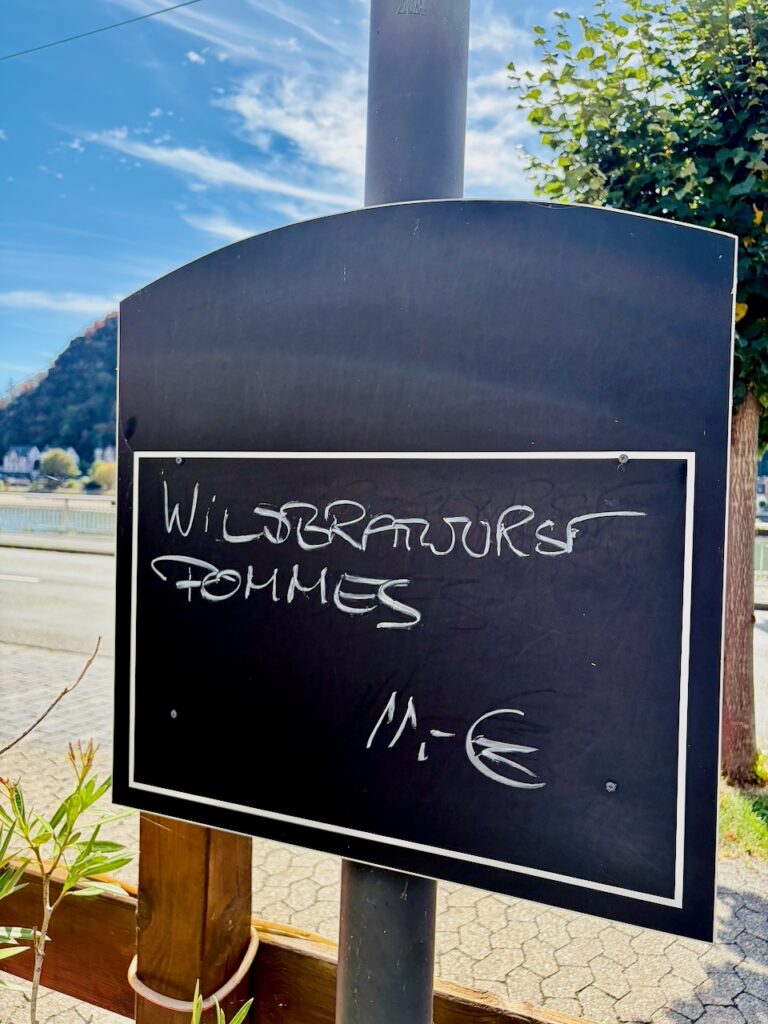 WILDBRATWURST
POMMES
11,-€